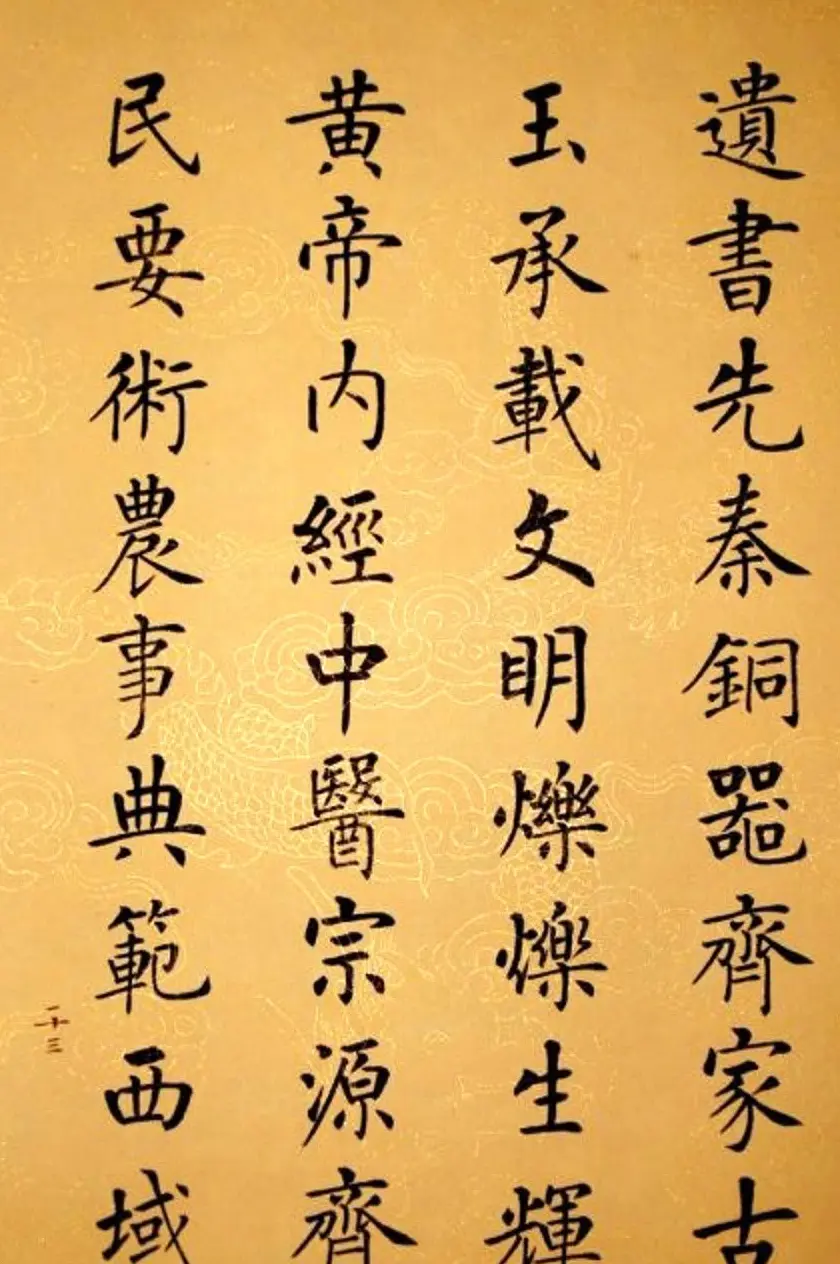 遺書先秦銅器齊家古
玉承載文明爍爍生輝
黄帝内經中醫宗源齊
民要術農事典範西域
二十三